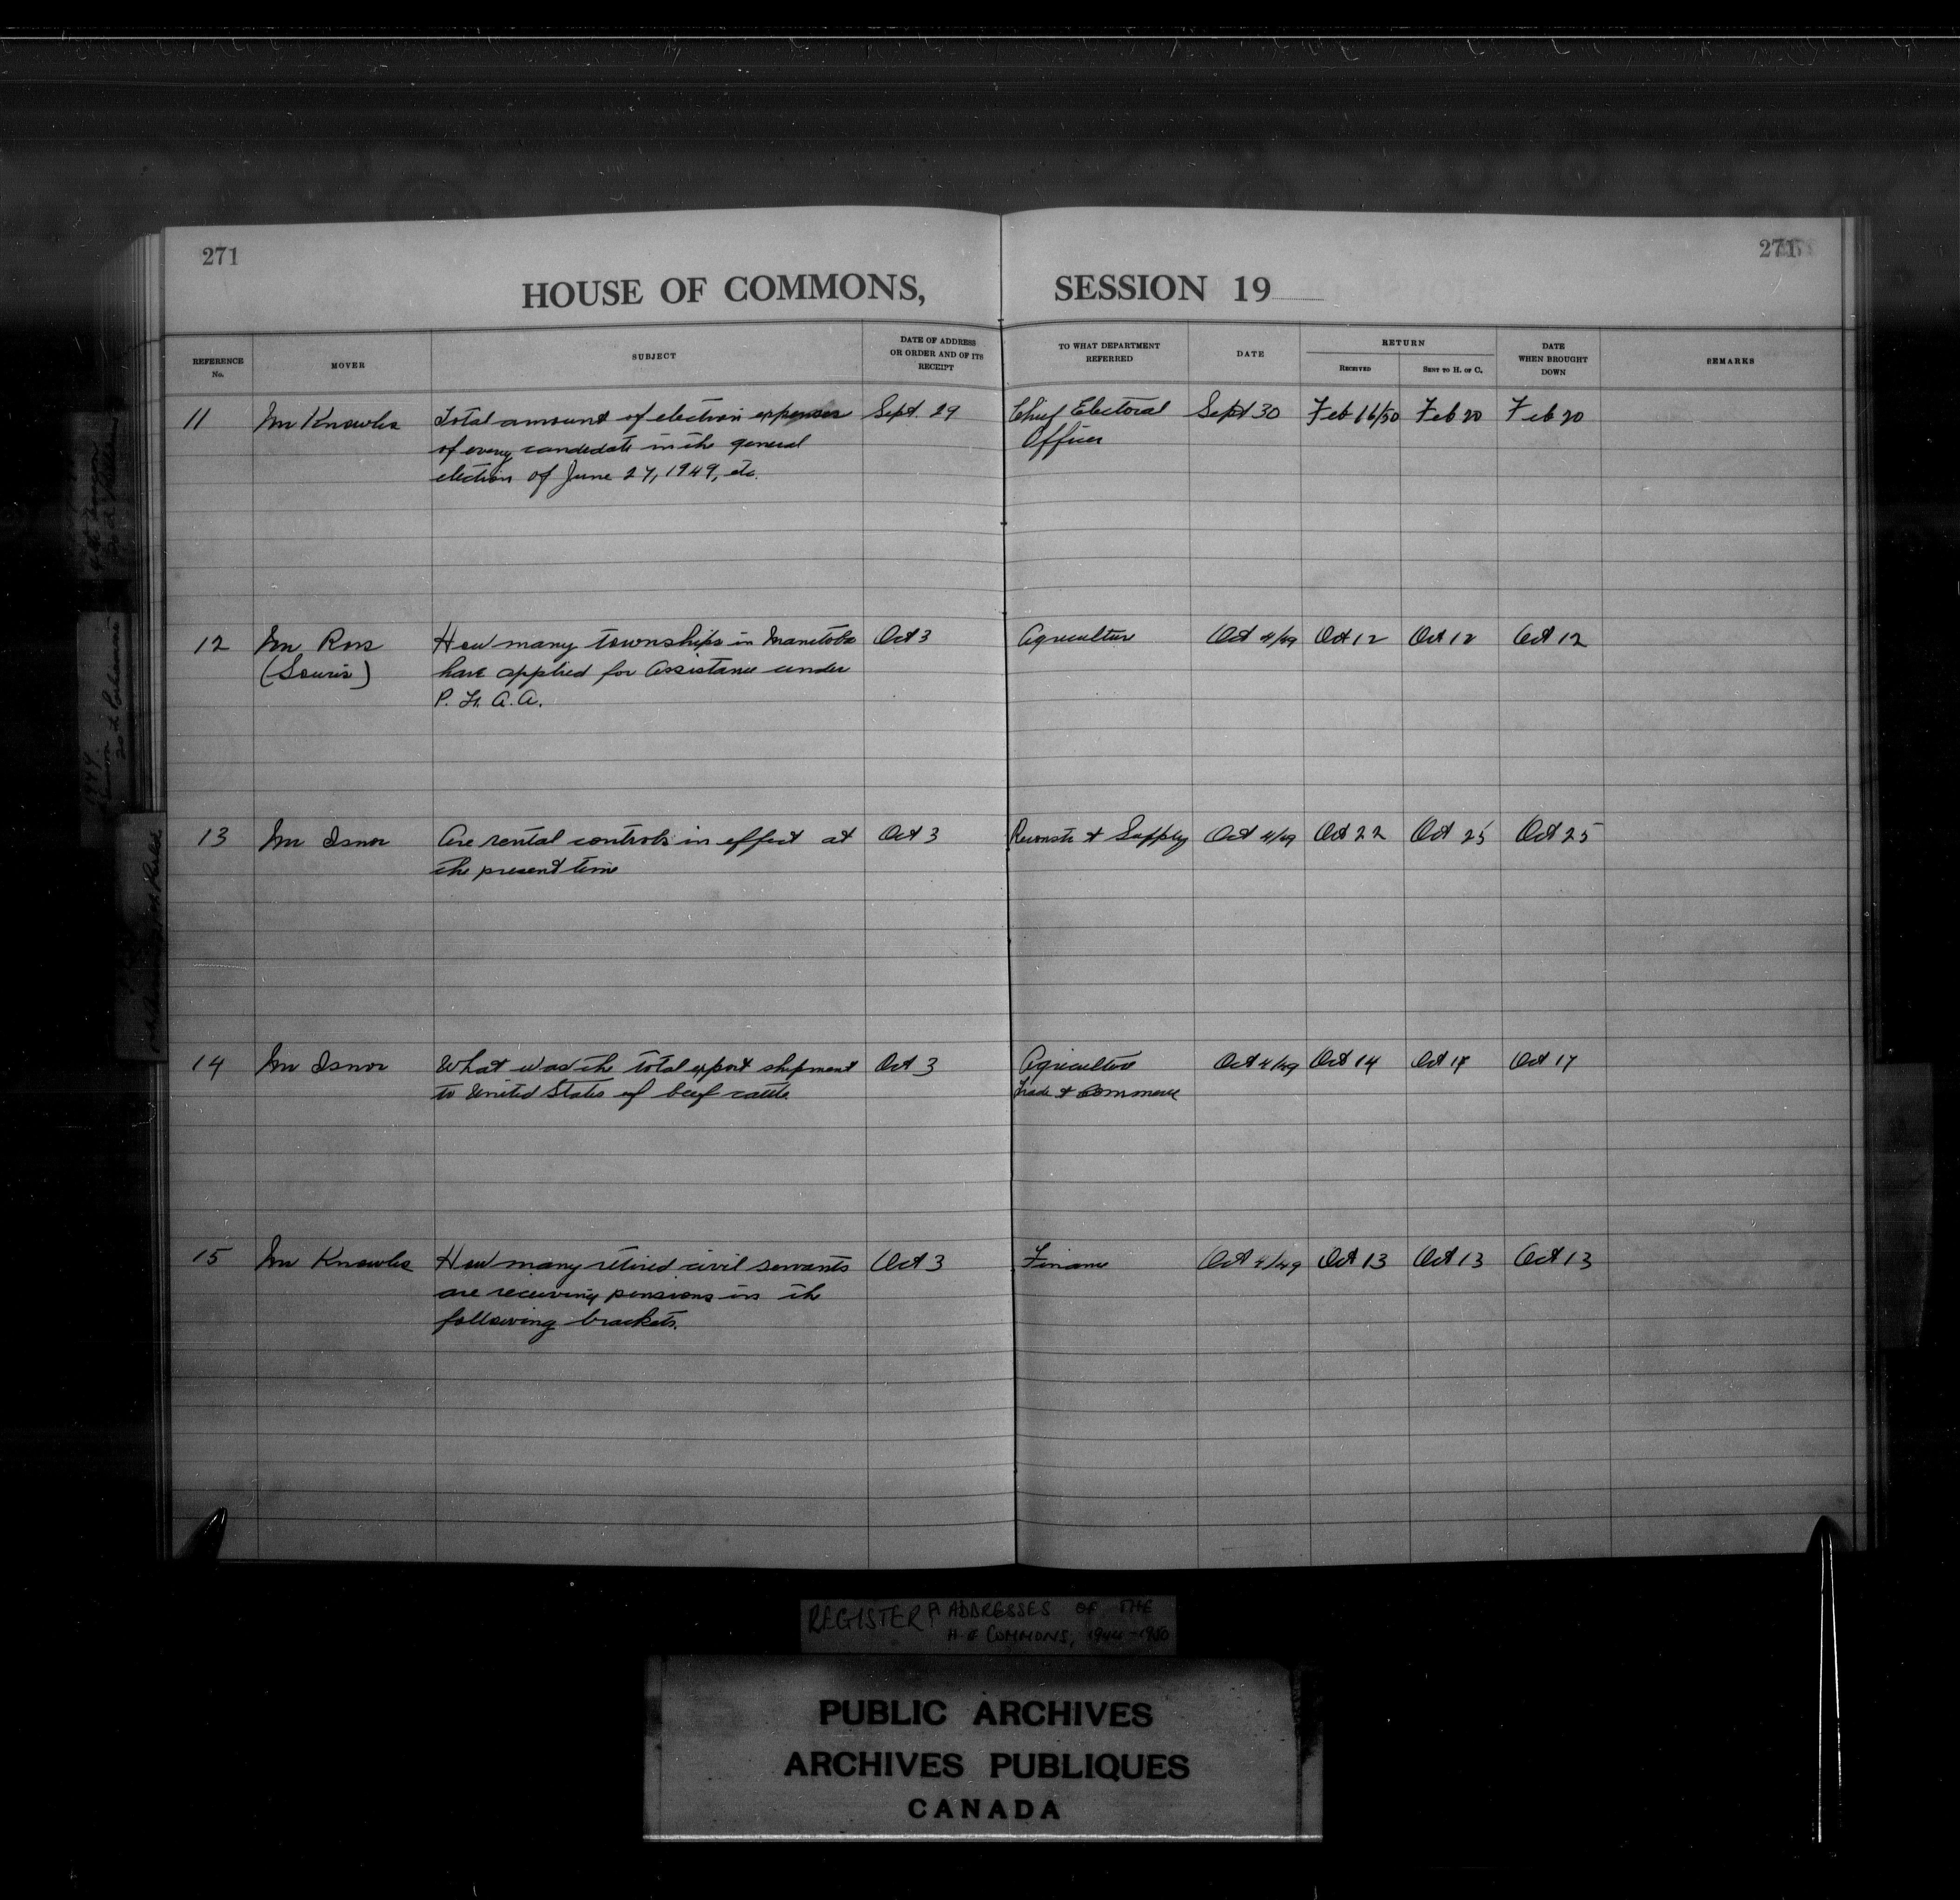 271
271
HOUSE OF COMMONS, SESSION 19
REFERENCE No.
MOVER
SUBJECT
DATE OF ADDRESS OR ORDER AND OF ITS RECEIPT
TO WHAT DEPARTMENT REFERRED
DATE
RETURN
RECEIVED
SENT TO H. OF C.
DATE WHEN BROUGHT DOWN
REMARKS
11 Mr Knowles Total amount of election expenses Sept. 29 Chief Electoral Sept 30 Feb 16/50 Feb 20 Feb 20
of every candidate in the general Officer
election of June 27, 1949, etc.
12 Mr Ross How many townships in Manitoba Oct 3 Agriculture Oct 4/49 Oct 12 Oct 12 Oct 12
(Souris) have applied for assistance under
P. F. A. A.
13 Mr Isnor Are rental controls in effect at Oct 3 Reconstr & Supply Oct 4/49 Oct 22 Oct 25 Oct 25
the present time
14 Mr Isnor What was the total export shipment Oct 3 Agriculture Oct 4/49 Oct 14 Oct 17 Oct 17
to United States of beef cattle. Trade & Commerce
15 Mr Knowles How many retired civil servants Oct 3 Finance Oct 4/49 Oct 13 Oct 13 Oct 13
are receiving pensions in the
following brackets.
REGISTER ADDRESSES OF THE
H of COMMONS, 1944-1950
PUBLIC ARCHIVES
ARCHIVES PUBLIQUES
CANADA